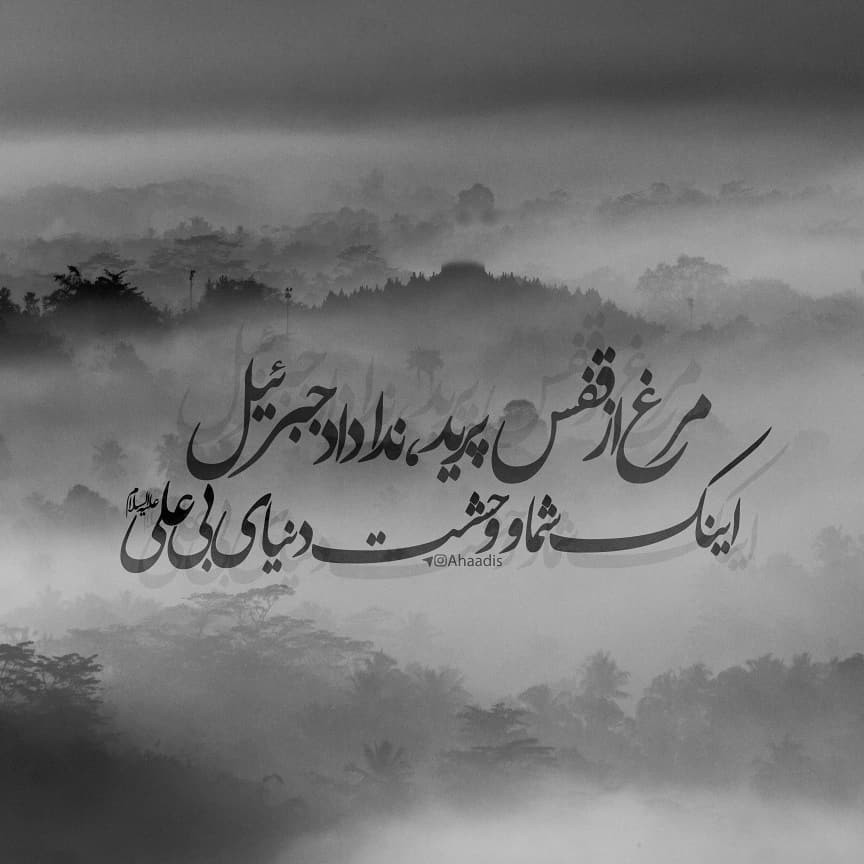 مرغ از قفس پرید، ندا داد جبرئیل
اینک شما و وحشت دنیای بی علی علیه‌السلام
@Ahaadis